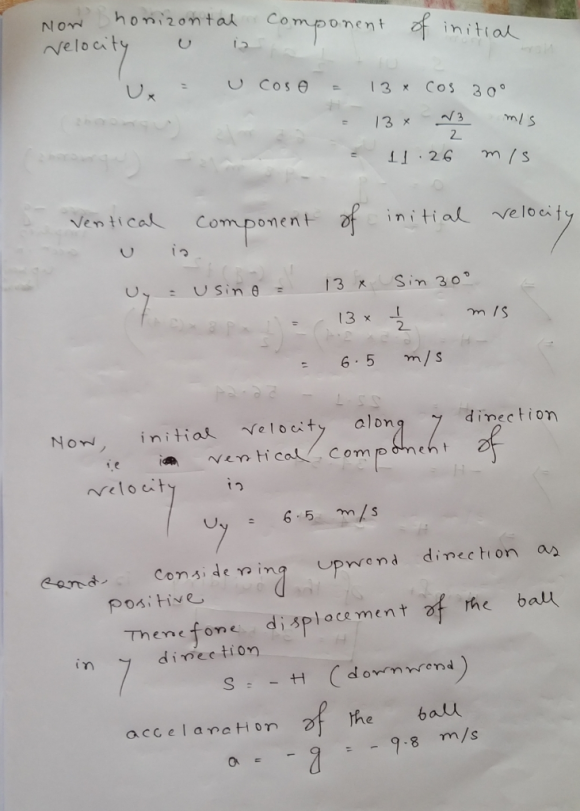 Now horizontal component of initial
velocity u is
Ux = U cosθ = 13 × cos 30°
= 13 × √3/2 m/s
= 11.26 m/s
vertical component of initial velocity
U is
Uy = U sinθ = 13 × Sin 30°
= 13 × 1/2 m/s
= 6.5 m/s
Now, initial velocity along y direction
i.e vertical component of
velocity is
Uy = 6.5 m/s
considering upward direction as
positive
Therefore displacement of the ball
in y direction
S = - H (downward)
accelaration of the ball
a = - g = - 9.8 m/s